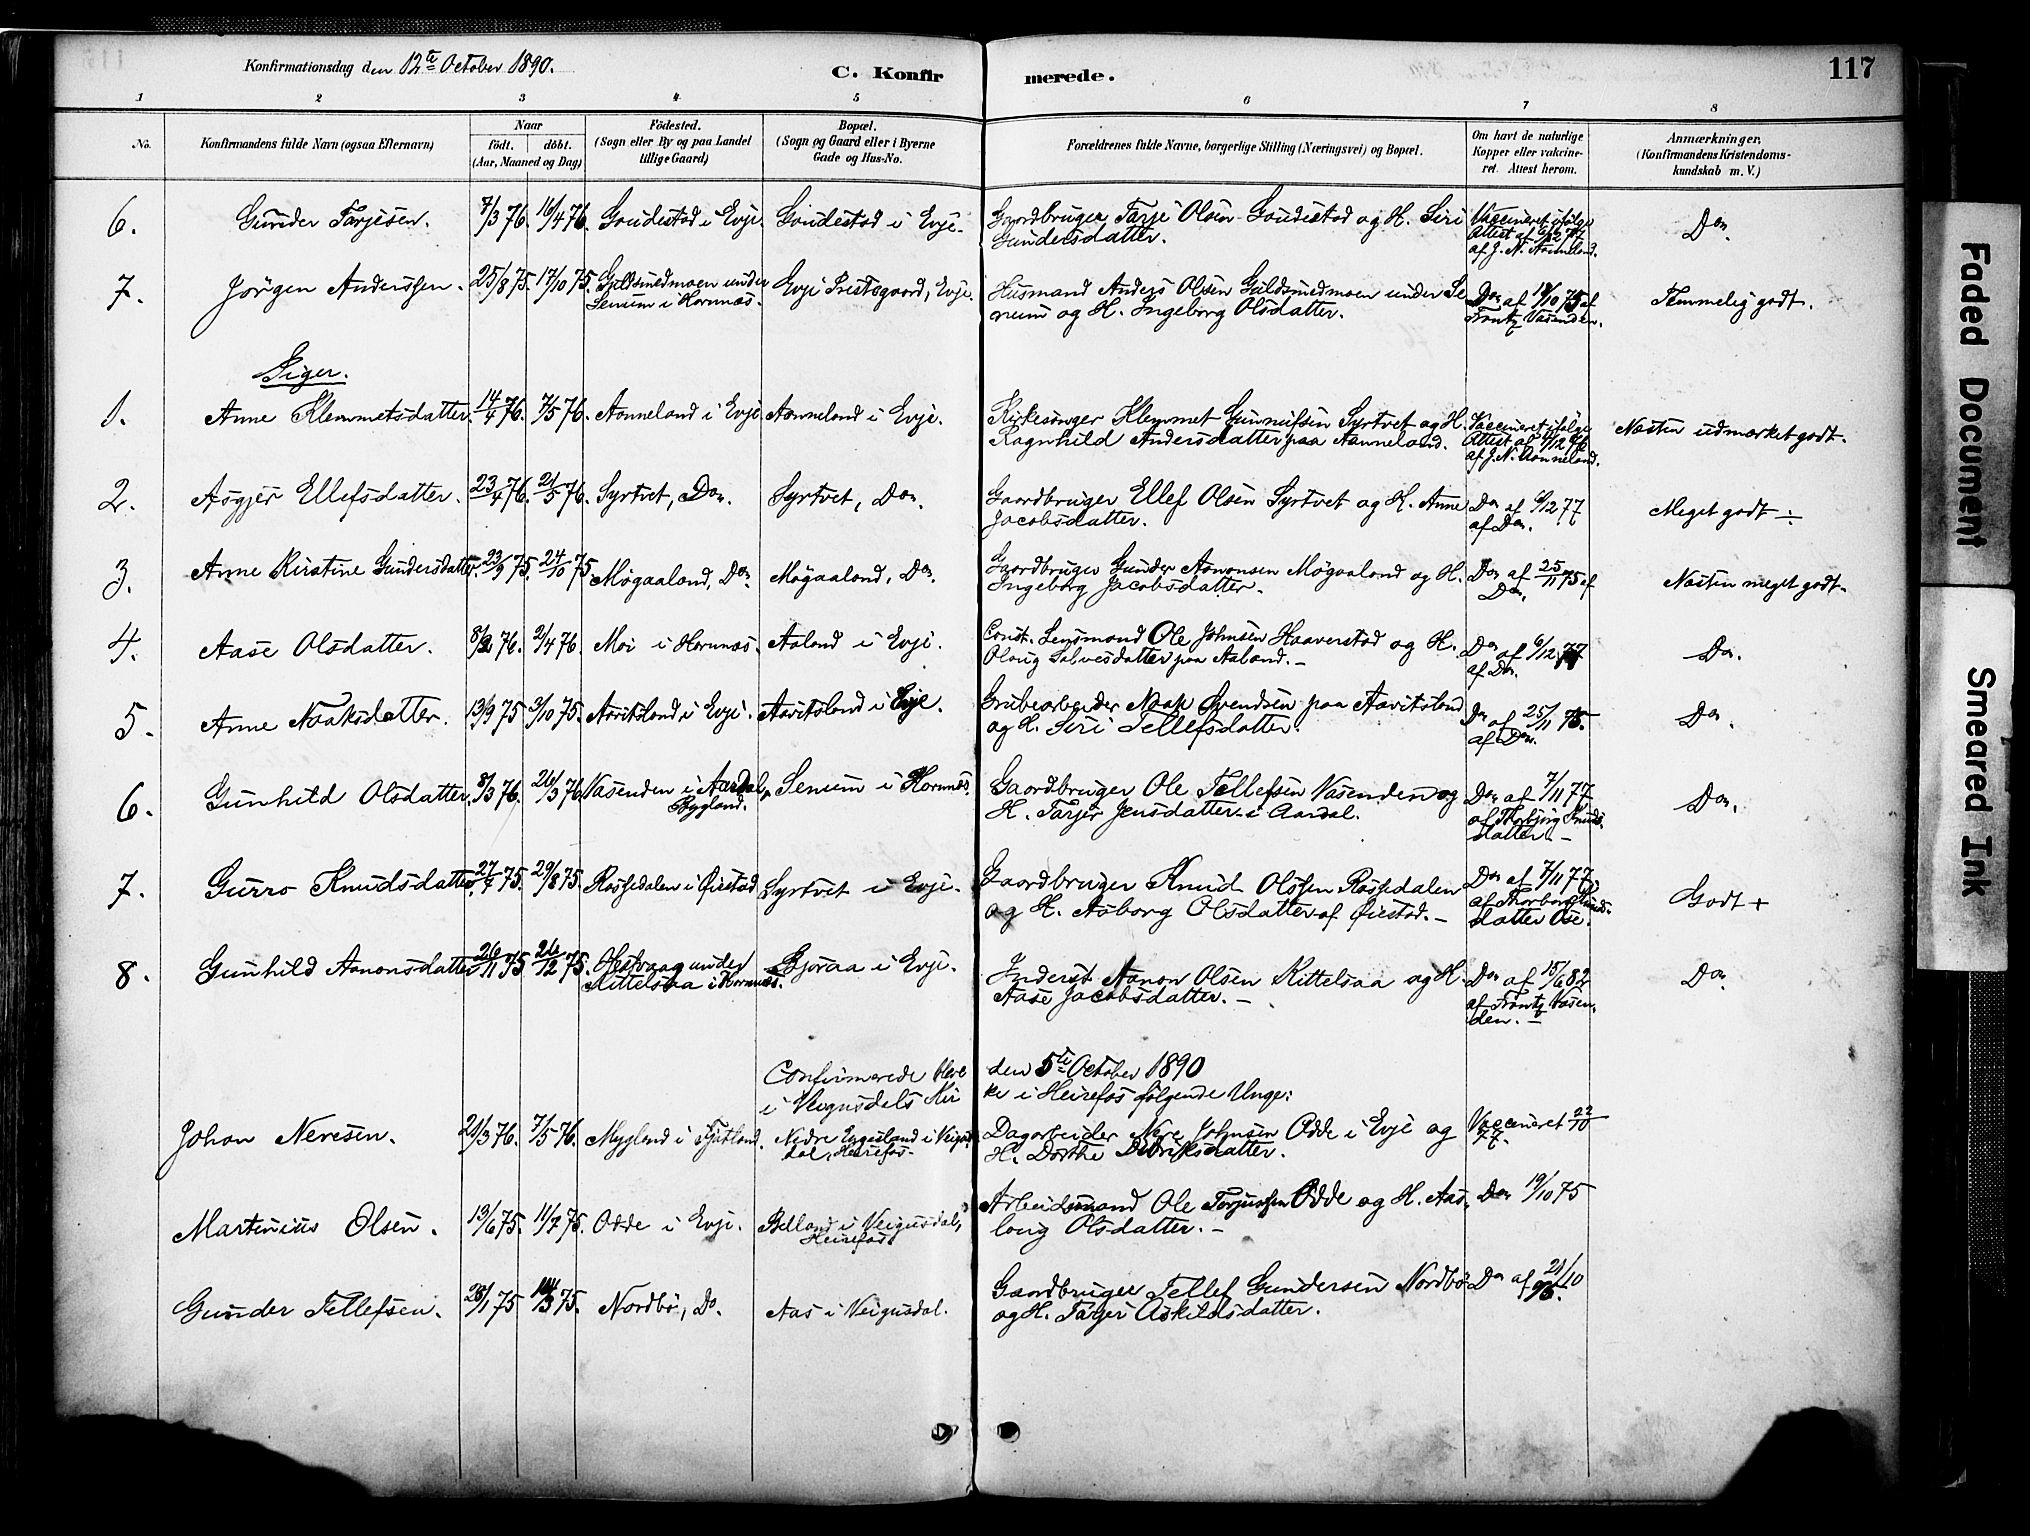 Konfirmationsdag den 12te October 1890. C. Konfirmerede. 117
1 2 3 4 5 6 7 8
No. Konfirmandens fulde Navn (ogsaa Efternavn) Naar födt. döbt. (Aar, Maaned og Dag) Födested. (Sogn eller By og paa Landet tillige Gaard) Bopæl. (Sogn og Gaard eller i Byerne Gade og Hus-No. Forældrenes fulde Navne, borgerlige Stilling (Næringsvei) og Bopæl. Om havt de naturlige Kopper eller vakcineret. Attest herom. Anmærkninger. (Konfirmandens Kristendomskundskab m. V.)
6. Gunder Tarjesen. 7/3 76. 16/4 76. Goudestad i Evje. Goudestad i Evje. Gaardbruger Tarje Olsen Goudestad og H. Siri
Gundersdatter. Vaccineret ifølge Attest af 6/12 77 af J. N. Aanneland. Do.
7. Jörgen Anderssen. 25/8 75. 17/10 75. Guldsmedmoen under Senum i Hornnæs. Evje Prestegaard, Evje. Husmand Anders Olsen Guldsmedmoen under Se
num og H. Ingeborg Olsdatter. Do af 18/10 75 af Tröntz Vasenden. Temmelig godt.
Piger.
1. Anne Klemmetsdatter. 14/4 76. 7/5 76. Aanneland i Evje Aanneland i Evje. Kirkesanger Klemmet Gunnufsen Syrtvet og H.
Ragnhild Andersdatter paa Aanneland. Vaccineret ifølge Attest af 4/12 76 af J. N. Aanneland. Næsten udmærket godt.
2. Asgjer Ellefsdatter. 23/4 76. 21/5 76. Syrtvet, Do. Syrtvet, Do. Gaardbruger Ellef Olsen Syrtvet og H. Anne
Jacobsdatter. Do af 6/12 77 af Do. Meget godt ÷
3. Anne Kirstine Gundersdatter. 23/9 75. 24/10 75. Møgaaland, Do. Møgaaland, Do. Gaardbruger Gunder Aanonsen Møgaaland og H.
Ingeborg Jacobsdatter. Do af 25/11 75 af Do. Næsten meget godt.
4. Aase Olsdatter. 8/2 76. 2/4 76. Moi i Hornnæs. Aaland i Evje. Const. Lensmand Ole Johnsen Haaverstad og H.
Oloug Salvesdatter paa Aaland. Do af 6/12 77 af Do. Do.
5. Anne Noaksdatter. 13/9 75 3/10 75. Aavitsland i Evje. Aavitsland i Evje. Grubearbeider Noak Svendsen paa Aavitsland
og H. Siri Tellefsdatter. Do af 25/11 75. af Do. Do.
6. Gunhild Olsdatter. 8/3 76. 26/3 76 Vasenden i Aardal, Bygland. Senum i Hornnæs. Gaardbruger Ole Tellefsen Vasenden og
H. Tarjer Jensdatter i Aardal. Do af 7/11 77 af Thorbjörg Knudsdatter. Do.
7. Gurro Knudsdatter 27/7 75. 29/8 75. Rossedalen i Øiestad Syrtvet i Evje. Gaardbruger Knud Olssen Rossedalen
og H. Aaborg Olsdatter af Øiestad. Do af 7/11 77. af Thorborg Knudsdatter Ose. Godt +
8. Gunhild Aanonsdatter 26/11 75 26/12 75. under Kittelsaa i Hornnæs. Bjoraa i Evje. Inderst Aanon Olsen Kittelsaa og H.
Aase Jacobsdatter. Do af 15/6 82 af Tröntz Vasenden. Do.
Confirmerede bleve den 5te October 1890
i Veigusdals Kirke i Heirefos følgende Unge:
Johan Neresen. 21/3 76. 7/5 76. Mygland i Fjotland. Nedre Engesland i Veigusdal, Heirefos. Dagarbeider Nere Johnsen Odde i Evje og
H. Dorthe Didriksdatter. Vaccineret 22/10 77.
Martinius Olsen. 13/6 75. 11/7 75. Odde i Evje. Belland i Veigusdal, Heirefos. Arbeidsmand Ole Torjussen Odde og H. Aas
loug Olsdatter. Do 19/10 75
Gunder Tellefsen. 28/1 75 14/3 75. Nordbö, Do. Aas i Veigusdal. Gaardbruger Tellef Gundersen Nordbö
og H. Tarjer Askildsdatter. Do af 21/10
Faded Document
Smeared Ink